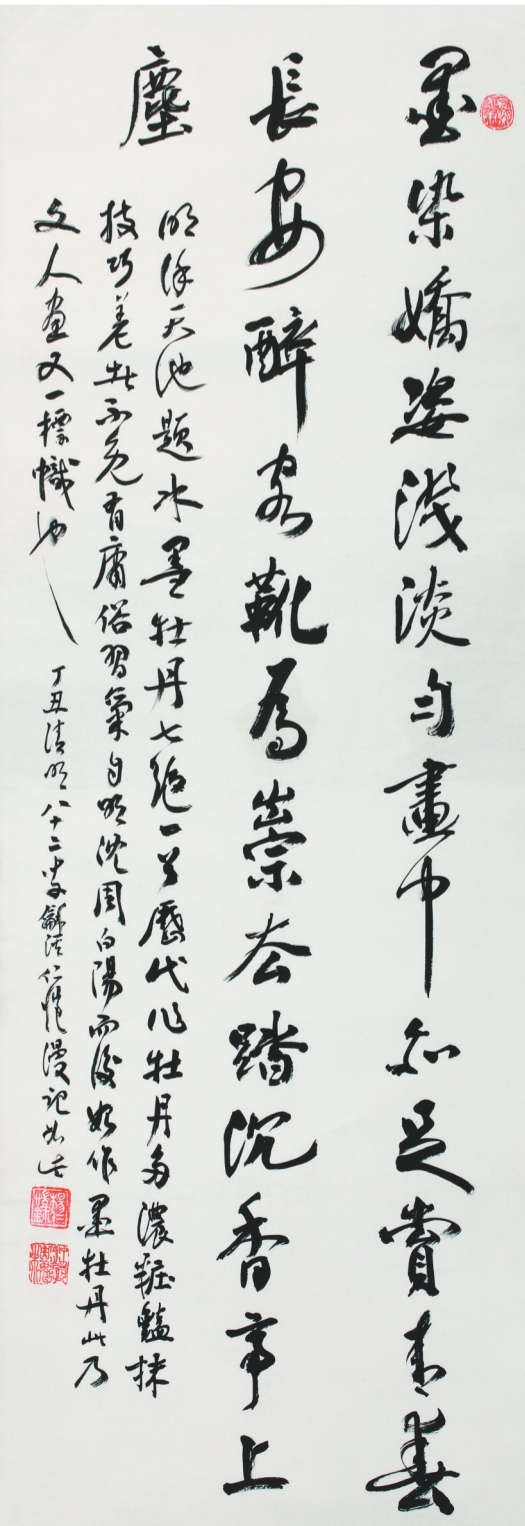 墨染嬌姿淺淡勻畫中亦足賞青春
長安醉客靴爲祟去踏沉香亭上
塵
明徐天池題水墨牡丹七絕一首歷代作牡丹多濃粧豔抹
技巧差些不免有庸俗習氣自明沈周白陽而後始作墨牡丹此乃
文人畫又一標幟也
丁丑清明八十二叟龢溪仁愷漫記